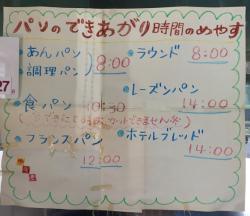 パンのできあがり時間のめやす
あんパン
調理パン
8:00
食パン 10:30
フランスパン
12:00
ラウンド 8:00
レーズンパン
14:00
ホテルブレッド
14:00
27